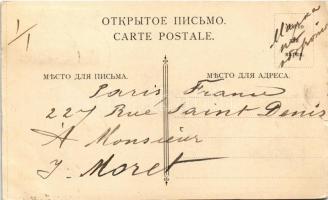 ОТКРЫТОЕ ПИСЬМО.
CARTE POSTALE.
1/1
Марка
МѢСТО ДЛЯ ПИСЬМА.
МѢСТО ДЛЯ АДРЕСА.
Paris France
227 Rue Saint Denis
À Monsieur
J. Moret